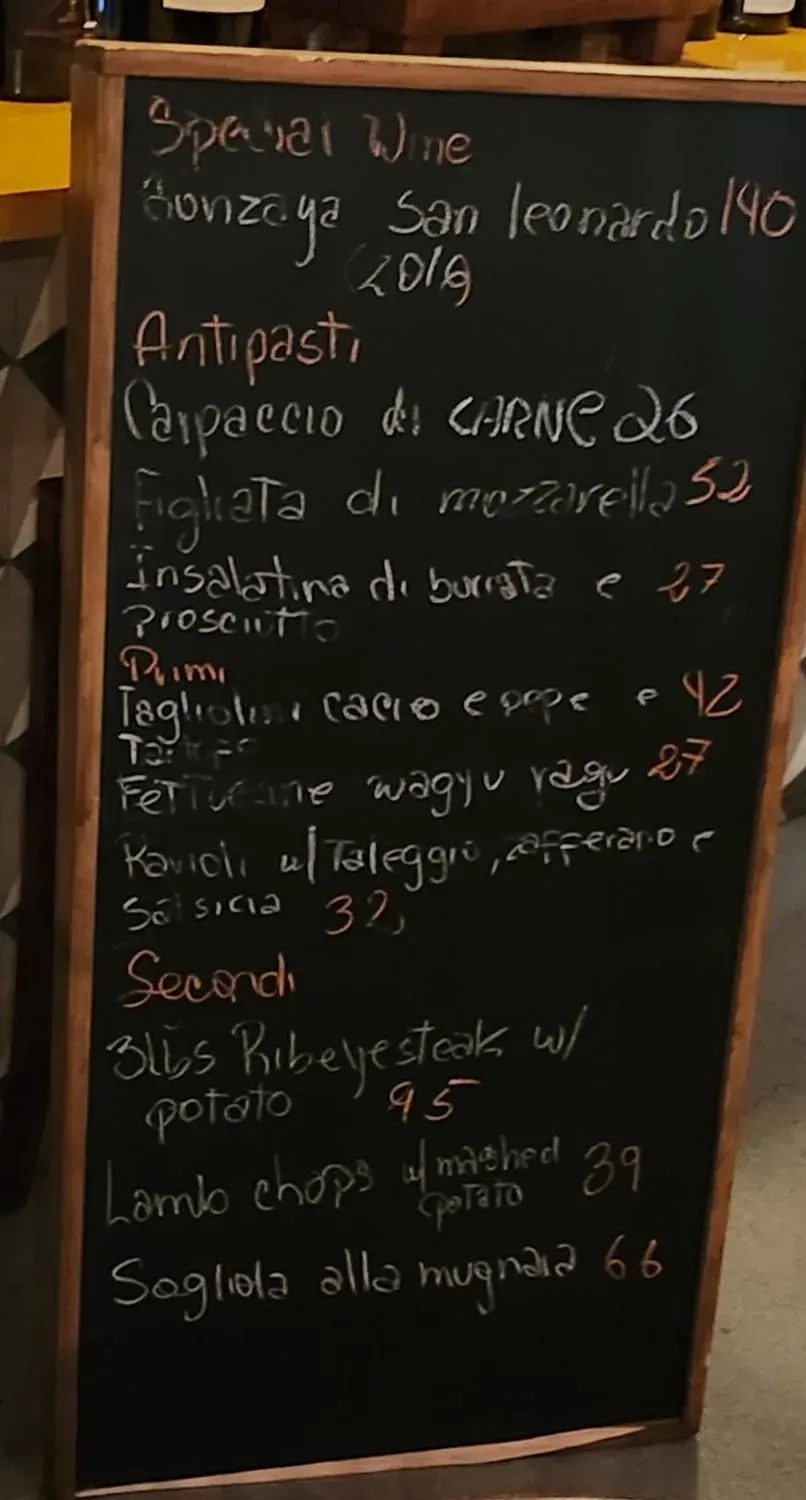 Special Wine
Gonzaga San leonardo 140
2019
Antipasti
Carpaccio di CARNE 26
Figliata di mozzarella 52
Insalatina di burrata e 27
Prosciutto
Primi
Tagliolini cacio e pepe e 42
Tartufo
Fettuccine wagyu ragu 27
Ravioli w/ Taleggio, zafferano e
Salsicia 32
Secondi
3lbs Ribeye steak w/
potato 95
Lamb chops w/ mashed 39
potato
Sogliola alla mugnaia 66